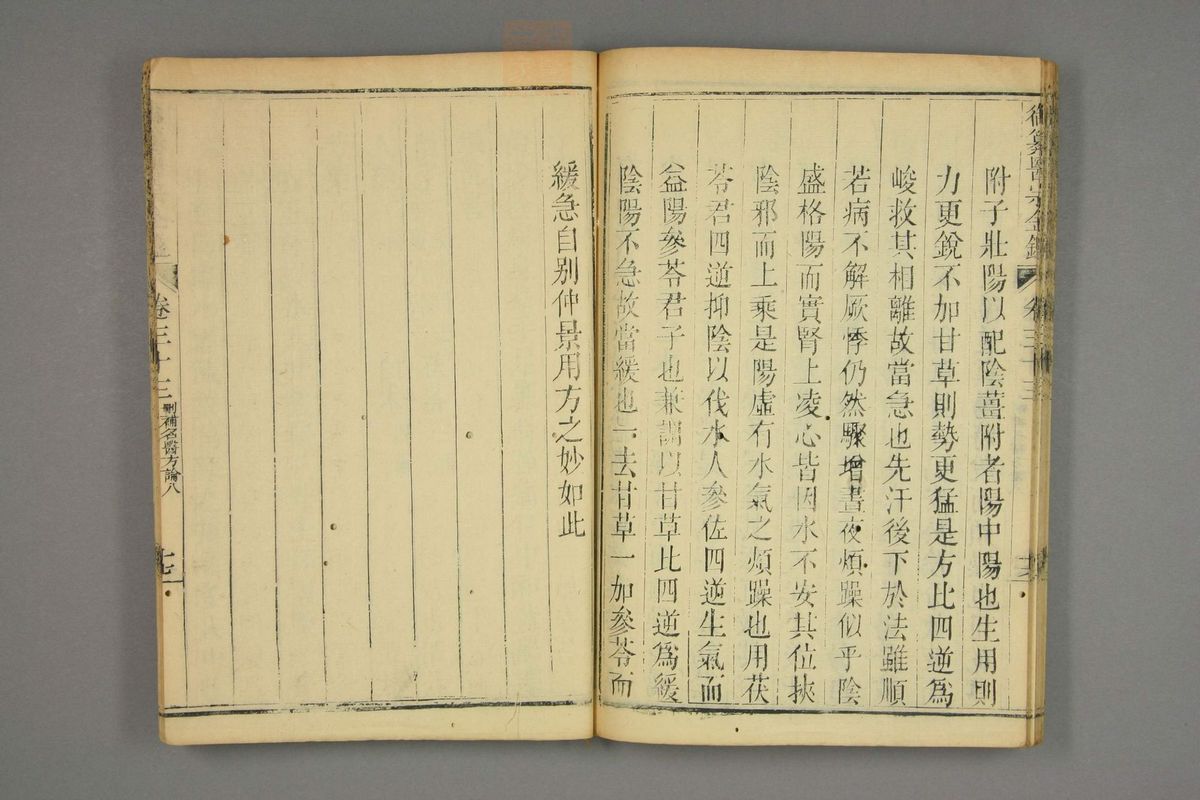 御纂醫宗金鑑 卷三十三
附子壯陽以配陰薑附者陽中陽也生用則
力更銳不加甘草則勢更猛是方比四逆為
峻救其相離故當急也先汗後下於法雖順
若病不解厥悸仍然驟增晝夜煩躁似乎陰
盛格陽而實腎上凌心皆因水不安其位挾
陰邪而上乘是陽虛有水氣之煩躁也用茯
苓君四逆抑陰以伐水人參佐四逆生氣而
益陽參苓君子也兼調以甘草比四逆爲緩
陰陽不急故當緩也一去甘草一加參苓而
緩急自別仲景用方之妙如此
卷三十三 刪補名醫方論八
十七